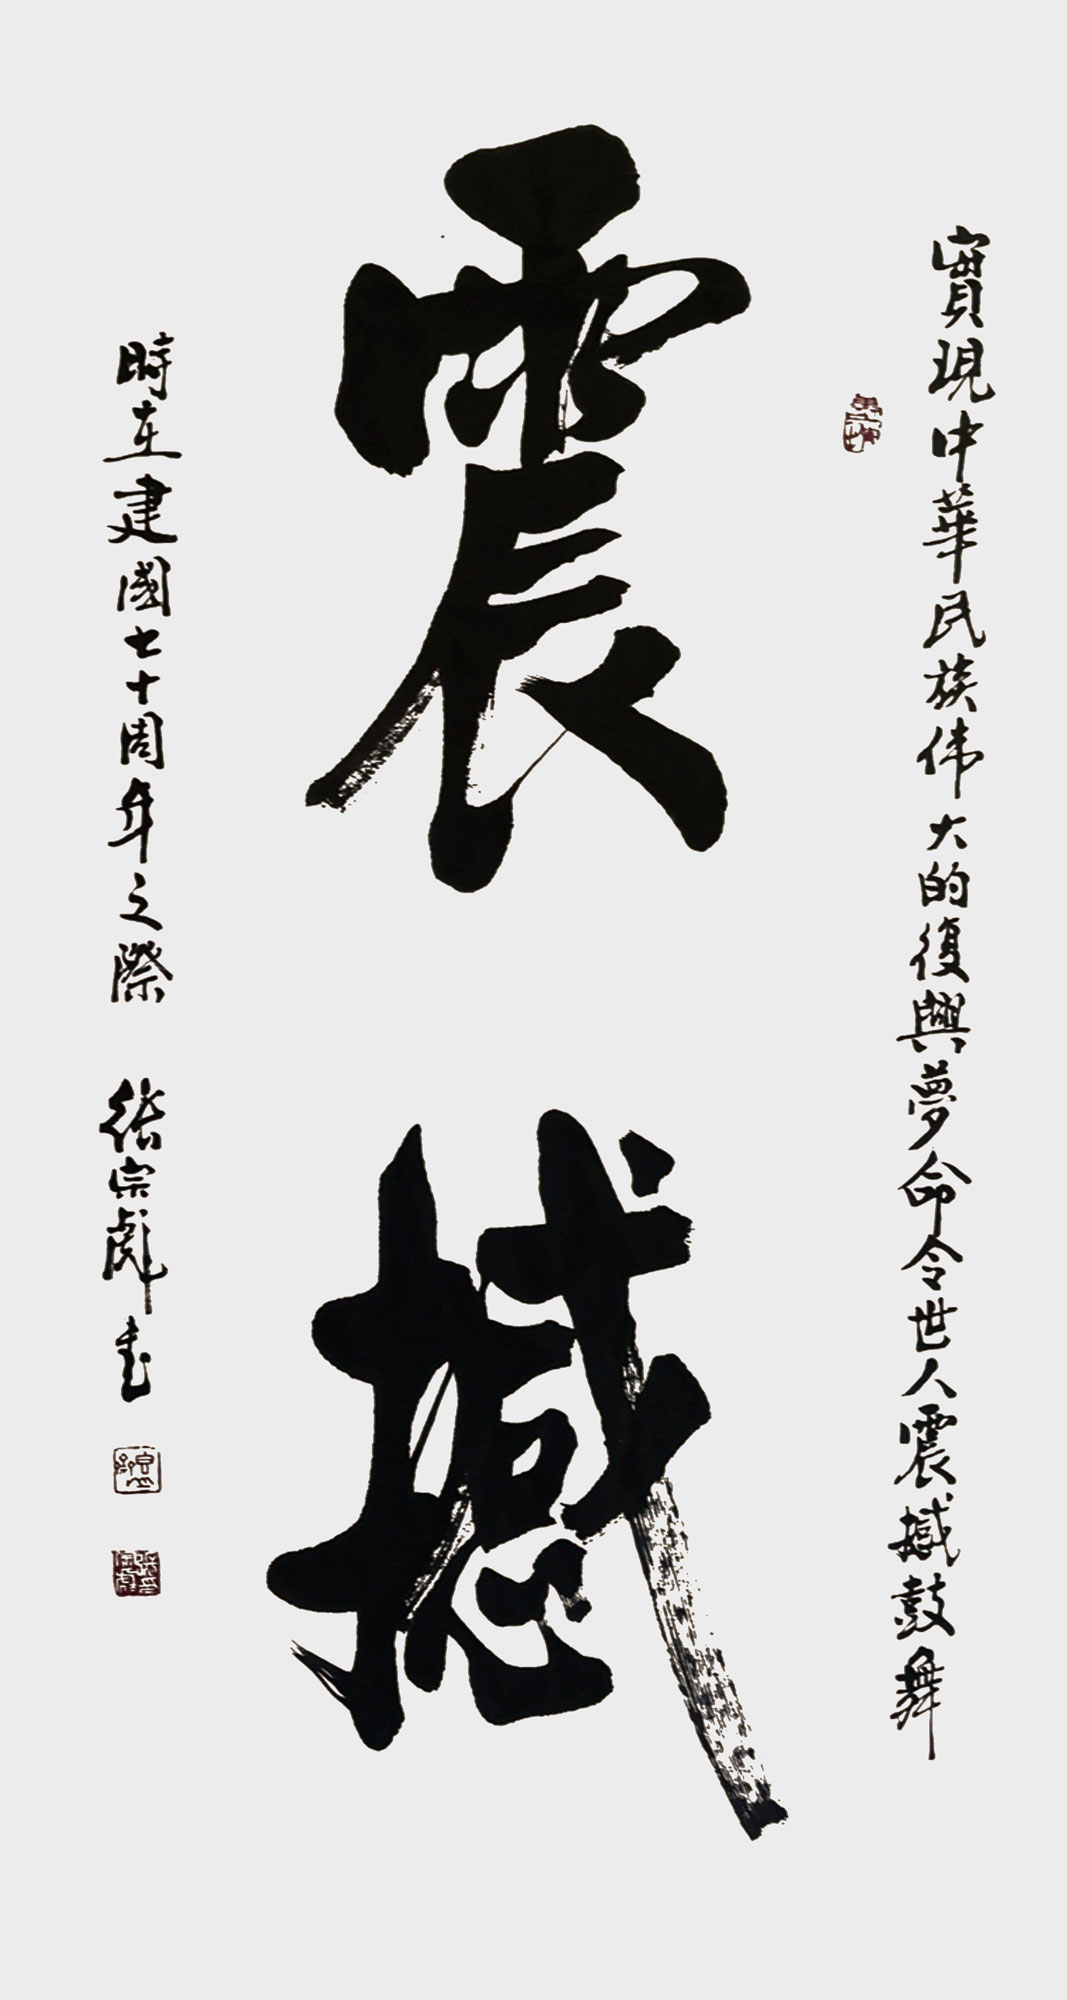 實現中華民族伟大的復興夢命令世人震撼鼓舞
震撼
時在建國七十周年之際 宗彪書